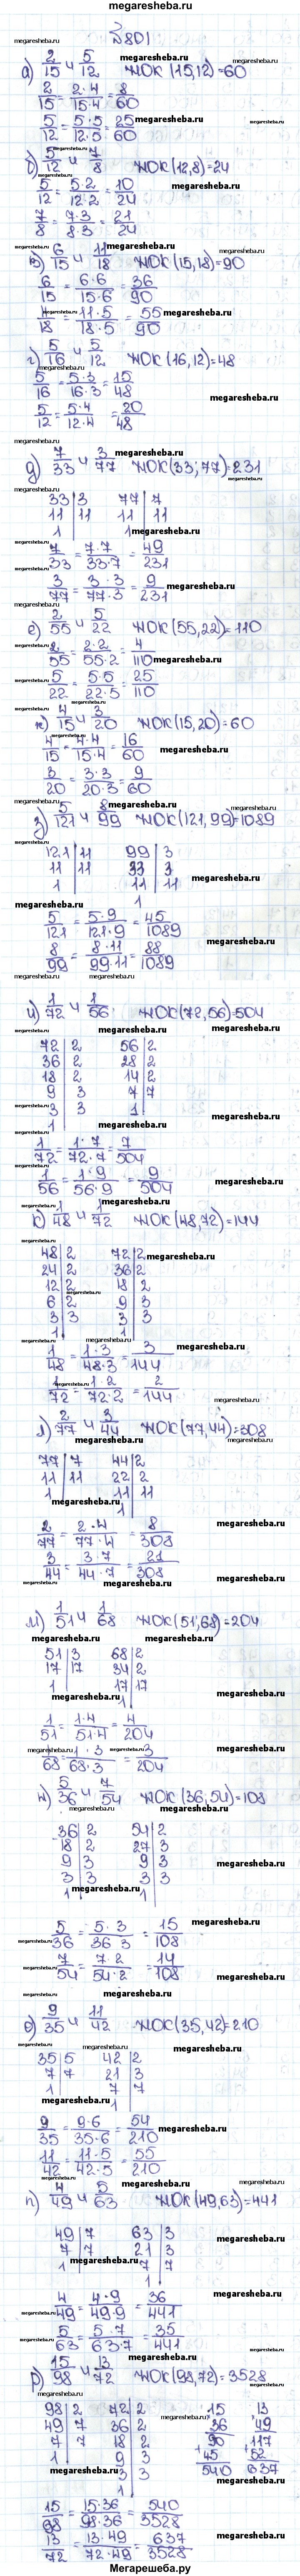 megaresheba.ru
№801
а) 2/15 и 5/12 НОК(15,12)=60
2/15 = 2·4/15·4 = 8/60
5/12 = 5·5/12·5 = 25/60
б) 5/12 и 7/8 НОК(12,8)=24
5/12 = 5·2/12·2 = 10/24
7/8 = 7·3/8·3 = 21/24
в) 6/15 и 11/18 НОК(15,18)=90
6/15 = 6·6/15·6 = 36/90
11/18 = 11·5/18·5 = 55/90
г) 5/16 и 5/12 НОК(16,12)=48
5/16 = 5·3/16·3 = 15/48
5/12 = 5·4/12·4 = 20/48
д) 7/33 и 3/77 НОК(33;77)=231
33|3 77|7
11|11 11|11
1| 1|
7/33 = 7·7/33·7 = 49/231
3/77 = 3·3/77·3 = 9/231
е) 2/55 и 5/22 НОК(55,22)=110
2/55 = 2·2/55·2 = 4/110
5/22 = 5·5/22·5 = 25/110
ж) 4/15 и 3/20 НОК(15,20)=60
4/15 = 4·4/15·4 = 16/60
3/20 = 3·3/20·3 = 9/60
з) 5/121 и 8/99 НОК(121,99)=1089
121|11 99|3
11|11 33|3
1| 11|11
1
5/121 = 5·9/121·9 = 45/1089
8/99 = 8·11/99·11 = 88/1089
и) 1/72 и 1/56 НОК(72,56)=504
72|2 56|2
36|2 28|2
18|2 14|2
9|3 7|7
3|3 1|
1|
1/72 = 1·7/72·7 = 7/504
1/56 = 1·9/56·9 = 9/504
к) 1/48 и 1/72 НОК(48,72)=144
48|2 72|2
24|2 36|2
12|2 18|2
6|2 9|3
3|3 3|3
1| 1|
1/48 = 1·3/48·3 = 3/144
1/72 = 1·2/72·2 = 2/144
л) 2/77 и 3/44 НОК(77,44)=308
77|7 44|2
11|11 22|2
1| 11|11
1|
2/77 = 2·4/77·4 = 8/308
3/44 = 3·7/44·7 = 21/308
м) 1/51 и 1/68 НОК(51,68)=204
51|3 68|2
17|17 34|2
1| 17|17
1|
1/51 = 1·4/51·4 = 4/204
1/68 = 1·3/68·3 = 3/204
н) 5/36 и 7/54 НОК(36,54)=108
36|2 54|2
18|2 27|3
9|3 9|3
3|3 3|3
1| 1|
5/36 = 5·3/36 3 = 15/108
7/54 = 7·2/54·2 = 14/108
о) 9/35 и 11/42 НОК(35,42)=210
35|5 42|2
7|7 21|3
1| 7|7
1|
9/35 = 9·6/35·6 = 54/210
11/42 = 11·5/42·5 = 55/210
п) 4/49 и 5/63 НОК(49,63)=441
49|7 63|3
7|7 21|3
1| 7|7
1|
4/49 = 4·9/49·9 = 36/441
5/63 = 5·7/63·7 = 35/441
р) 15/98 и 13/72 НОК(98,72)=3528
98|2 72|2 15 13
49|7 36|2 36 49
7|7 18|2 90 117
1| 9|3 +45 +52
3|3 540 637
1|
15/98 = 15·36/98·36 = 540/3528
13/72 = 13·49/72·49 = 637/3528
Мегарешеба.ру